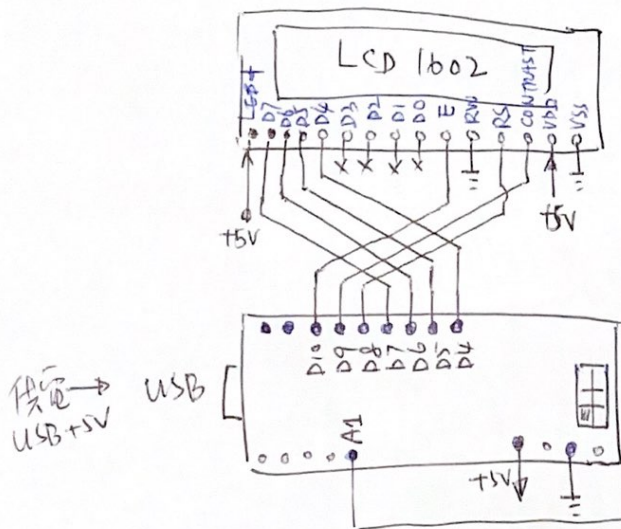 LCD 1602
LED+
D7
D6
D5
D4
D3
D2
D1
D0
E
RW
RS
CONTRAST
VDD
VSS
+5V
+5V
D10
D9
D8
D7
D6
D5
D4
供電→
USB+5V
USB
A1
+5V